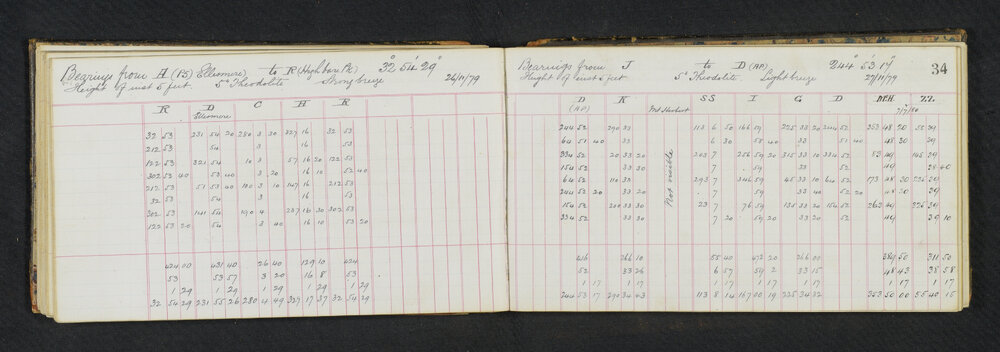 Bearings from A (15) Ellesmere to R (High bare Pk) 32° 54' 29"
Height of inst 5 feet. 5" Theodolite Strong breeze 26/11/79
R D C H R
Ellesmere
32 53 231 54 20 280 3 30 327 16 32 53
212 53 54 3 16 53
122 53 321 54 10 3 57 16 20 122 53
302 53 40 53 40 3 20 16 10 52 40
212 53 51 53 40 100 3 10 147 16 212 53
32 53 54 3 16 53
302 53 141 54 190 4 237 16 30 302 53
122 53 20 54 3 40 16 10 53 20
424 00 431 40 26 40 129 10 424
53 53 57 3 20 16 8 53
1 29 1 29 1 29 1 29 1 29
32 54 29 231 55 26 280 4 49 327 17 37 32 54 29
Bearings from J to D (AP) 244° 53' 17" 34
Height of inst 5 feet 5" Theodolite Light breeze 27/11/79
D K Mt Herbert SS I G D M.H. ZZ.
(AP)
244 52 290 33 113 6 50 166 59 225 33 20 244 52 353 48 20 55 39
64 51 40 33 6 30 58 40 33 51 40 48 30 39
334 52 20 33 20 203 7 256 59 20 315 33 10 334 52 83 49 145 39
154 52 33 30 7 59 33 52 49 38 40
64 52 110 33 Not visible 293 7 346 59 45 33 10 64 52 173 48 30 235 39
244 52 20 33 20 7 59 33 40 52 20 48 20 39
154 52 200 33 30 23 7 76 59 135 33 20 154 52 263 49 325 39
334 52 33 30 7 20 59 20 33 20 52 49 39 10
416 266 10 55 40 472 20 266 00 389 50 311 50
52 33 26 6 57 59 2 33 15 48 43 38 58
1 17 1 17 1 17 1 17 1 17 1 17 1 17
244 53 17 290 34 43 113 8 14 167 00 19 225 34 32 353 50 00 55 40 15